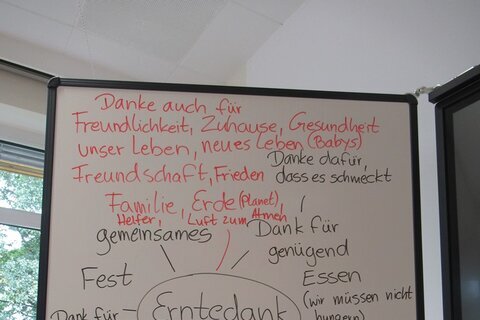 Danke auch für
Freundlichkeit, Zuhause, Gesundheit
unser Leben, neues Leben (Babys)
Freundschaft, Frieden
Danke dafür,
dass es schmeckt
Familie, Erde (Planet),
Helfer, Luft zum Atmen
gemeinsames
Fest
Dank für
genügend
Essen
(wir müssen nicht
hungern)
Dank für
Erntedank